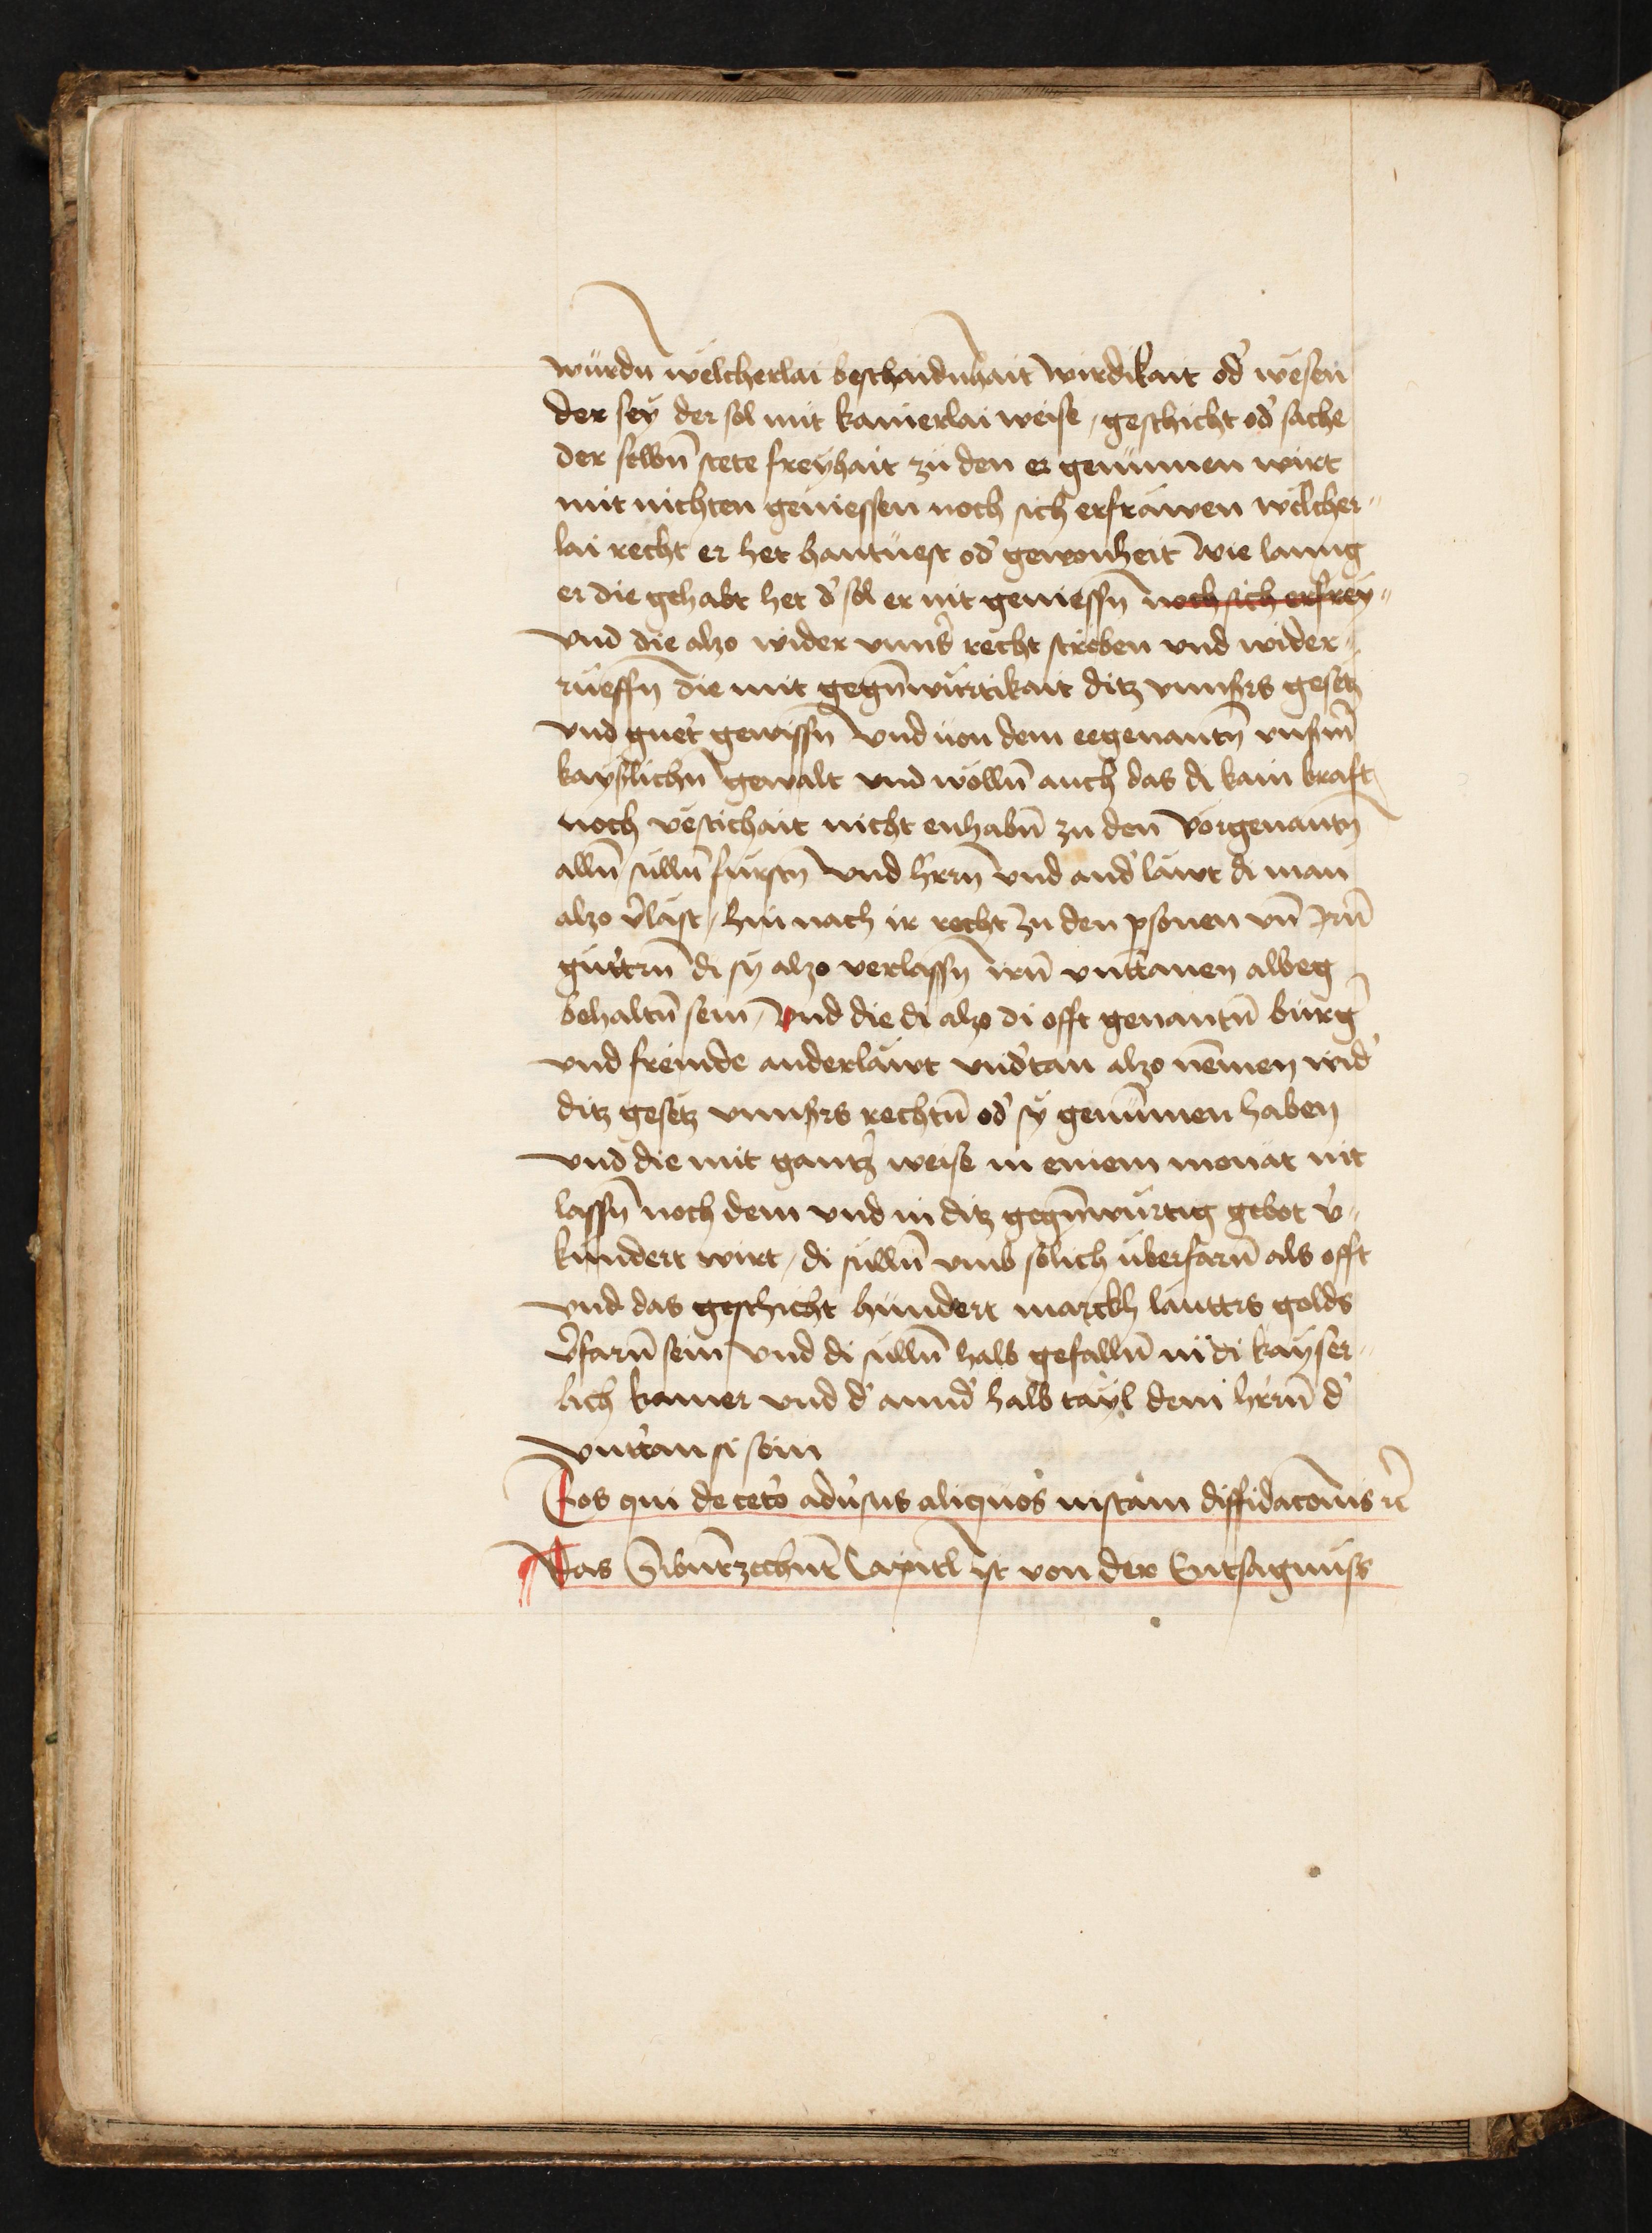 würdn̄ welcherlai beschaidnhait wirdikait od' wesen
der seÿ der sol mit kainerlai weise / geschicht od' sache
der selbn̄ stete freÿhait zu den er genummen wirt
mit nichten geniessen noch sich erfräwen wölcher-
lai recht er het hantuest od' gewonheit wie lanng
er die gehabt het d' sol er nit geniessn̄ noch sich erfreÿ-
vnd die alzo wider vnns's recht streben vnd wider-
rüeffn̄ die mit gegn̄würtikait ditz vnnsers gesetz
vnd guet' gewissn̄ vnd uon dem eegenantn̄ vnserm̄
kaÿs'lichn̄ gewalt vnd wölln̄ auch das di kain kraft
noch vestichait nicht enhabn̄ zu den vorgenantn̄
alln̄ sülln̄ fürstn̄ vnd hern̄ vnd and' läwt di man
alzo v'läst / hin nach ir recht zu den p̱sonen vn̄ Irn̄
güttrn̄ di sy alzo verlassn̄ irn̄ vnttanen albeg
behaltn̄ sein / Vnd die di alzo di offt genantn̄ burg'
vnd fremde anderläwt vnd'tan alzo nemen wid'
ditz gesetz vnnsers rechtn̄ od' sÿ genummen haben
vnd die mit gantz' weise in einem monat nit
lassn̄ noch dem vnd in ditz gegn̄würtig gebot v'-
kündert wirt / di sülln̄ vmb sölich überfarn̄ als offt
vnd das geschicht hundert marckh lautters golds
v'farn̄ sein / vnd di sülln̄ halb gefalln̄ in di kaÿser-
lich kamer vnd d' annd' halb taÿl dem herrn̄ d'
vnttan si sein
Eos qui de cet'o adu'sus aliquos iustam diffidacōnis rc̄
Das Sibentzechent Capitl ist von der Entsagnüss